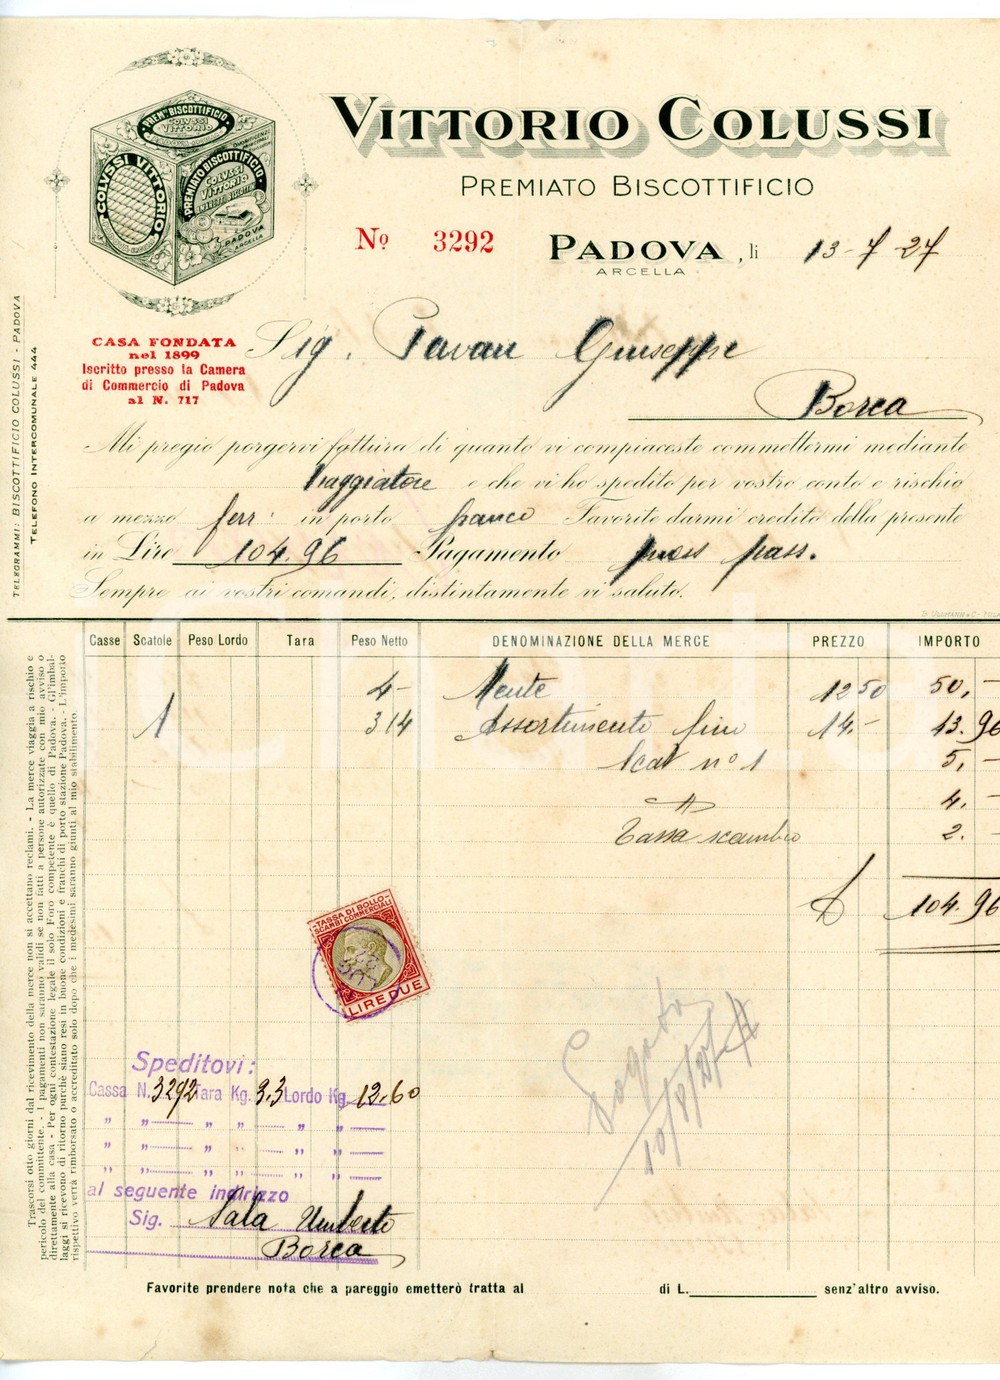 VITTORIO COLUSSI
PREMIATO BISCOTTIFICIO
No 3292
PADOVA, li 13-7-27
ARCELLA
PREMto BISCOTTIFICIO
COLUSSI
VITTORIO
COLVSSI VITTORIO
PREMIATO BISCOTTIFICIO
COLUSSI
VITTORIO
PADOVA
ARCELLA
CASA FONDATA
nel 1899
Iscritto presso la Camera
di Commercio di Padova
al N. 717
TELEGRAMMI: BISCOTTIFICIO COLUSSI - PADOVA
TELEFONO INTERCOMUNALE 444
Sig. Pavan Giuseppe
Borca
Mi pregio porgervi fattura di quanto vi compiaceste commettermi mediante
Viaggiatore e che vi ho spedito per vostro conto e rischio
a mezzo ferr. in porto franco Favorite darmi credito della presente
in Lire 104.96 Pagamento pross pass.
Sempre ai vostri comandi, distintamente vi saluto.
Casse Scatole Peso Lordo Tara Peso Netto DENOMINAZIONE DELLA MERCE PREZZO IMPORTO
4- Mente 12 50 50,-
1 314 Assortimento fino 14.- 13.96
Scat no 1 5,-
4.-
Tassa scambio 2.-
104.96
TASSA DI BOLLO
SCAMBI COMMERCIALI
LIRE DUE
Pagato
10/8/27
Speditovi:
Cassa N. 3292 Tara Kg. 3.3 Lordo Kg. 12.60
" " " " " "
" " " " " "
" " " " " "
al seguente indirizzo
Sig. Sala Umberto
Borca
Trascorsi otto giorni dal ricevimento della merce non si accettano reclami. - La merce viaggia a rischio e
pericolo del committente. - I pagamenti non saranno validi se non fatti a persone autorizzate con mio avviso o
direttamente alla casa - Per ogni contestazione legale il solo Foro competente è quello di Padova. - Gl'imbal-
laggi si ricevono di ritorno purchè siano resi in buone condizioni e franchi di porto stazione Padova. - L'importo
rispettivo verrà rimborsato o accreditato solo dopo che i medesimi saranno giunti al mio stabilimento.
Favorite prendere nota che a pareggio emetterò tratta al di L. senz'altro avviso.